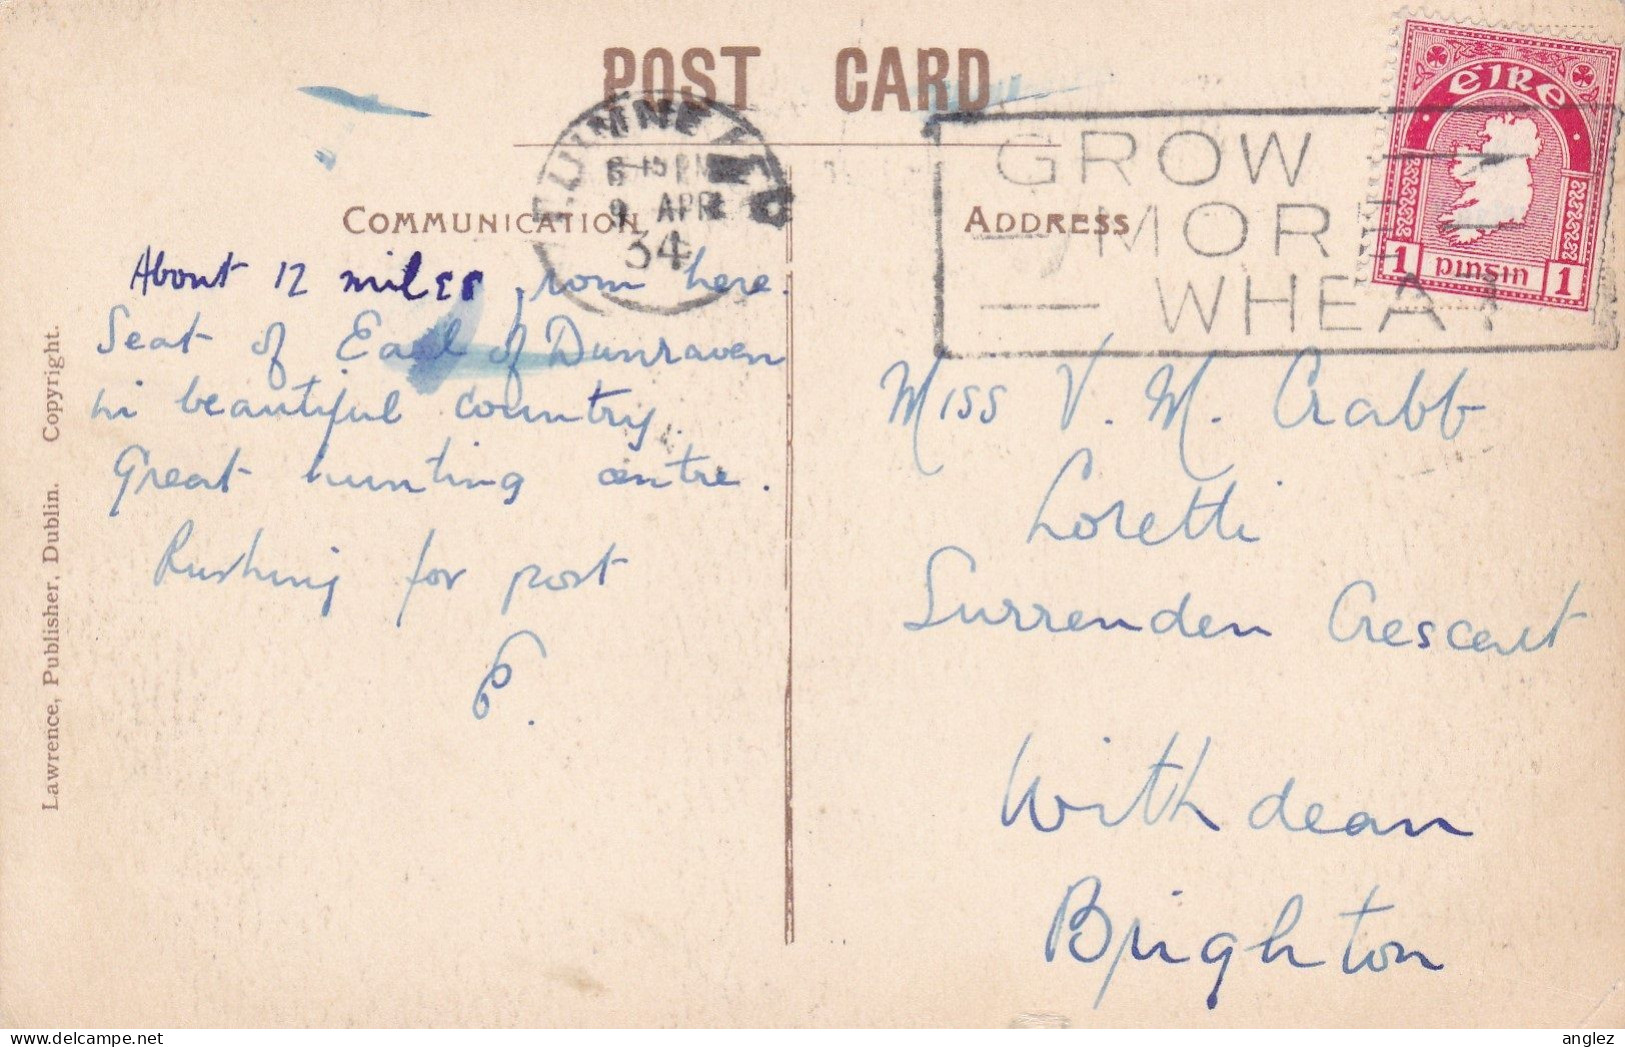 POST CARD
LUIMNEACH
6 15 PM
9 APR
34
GROW
MORE
WHEAT
éire
1 pinsin 1
COMMUNICATION
ADDRESS
About 12 miles from here.
Seat of Earl of Dunraven
in beautiful country.
Great hunting centre.
Rushing for post
P.
Miss V. M. Crabb
Loretti
Surrenden Crescent
Withdean
Brighton
Lawrence, Publisher, Dublin. Copyright.
anglez